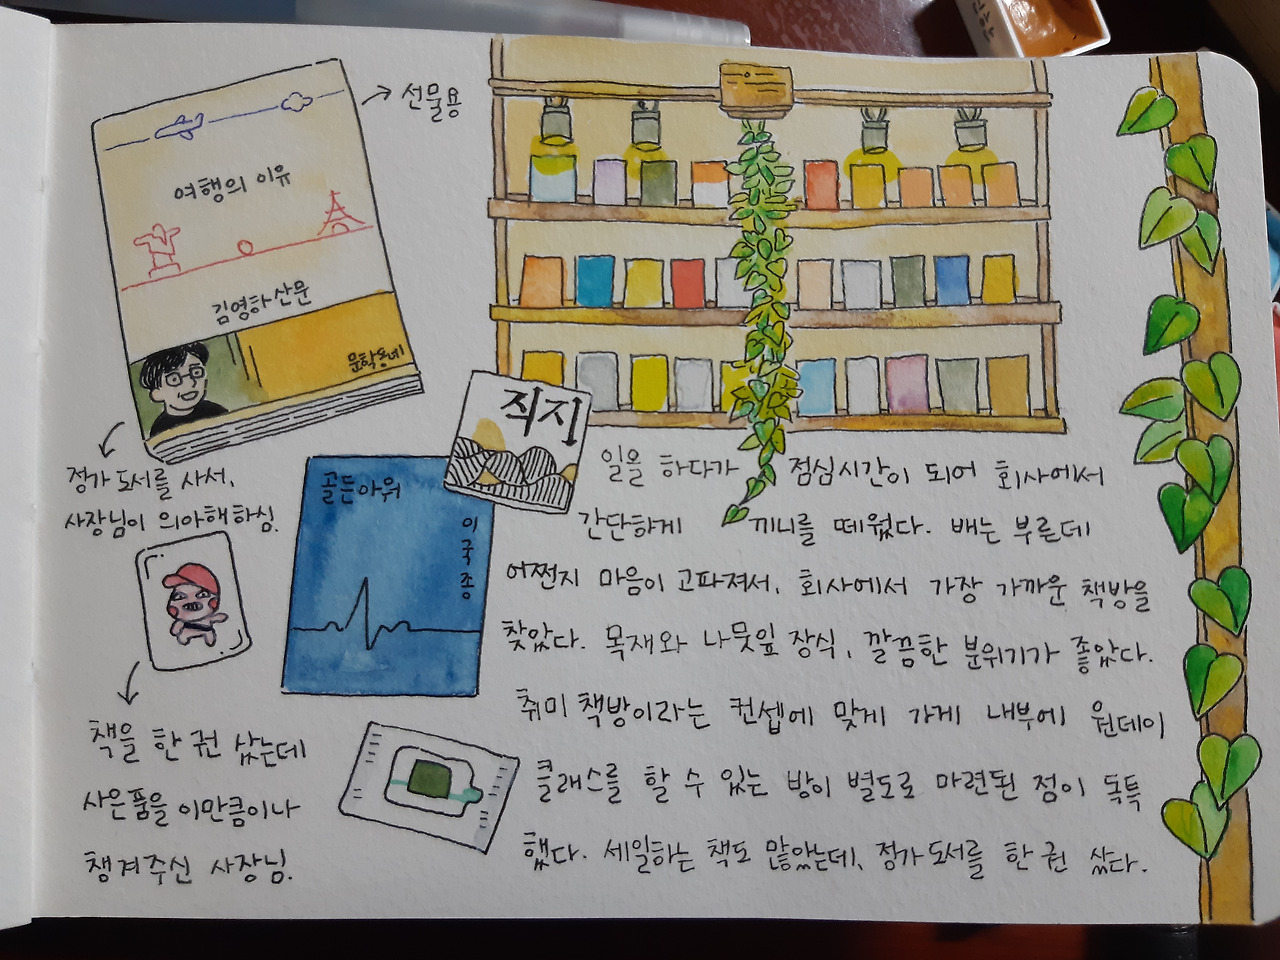 선물용
여행의 이유
김영하 산문
문학동네
정가 도서를 사서,
사장님이 의아해하심.
직지
골든아워
이국종
책을 한 권 샀는데
사은품을 이만큼이나
챙겨주신 사장님.
일을 하다가 점심시간이 되어 회사에서
간단하게 끼니를 떼웠다. 배는 부른데
어쩐지 마음이 고파져서, 회사에서 가장 가까운 책방을
찾았다. 목재와 나뭇잎 장식, 깔끔한 분위기가 좋았다.
취미 책방이라는 컨셉에 맞게 가게 내부에 원데이
클래스를 할 수 있는 방이 별도로 마련된 점이 독특
했다. 세일하는 책도 많았는데, 정가 도서를 한 권 샀다.